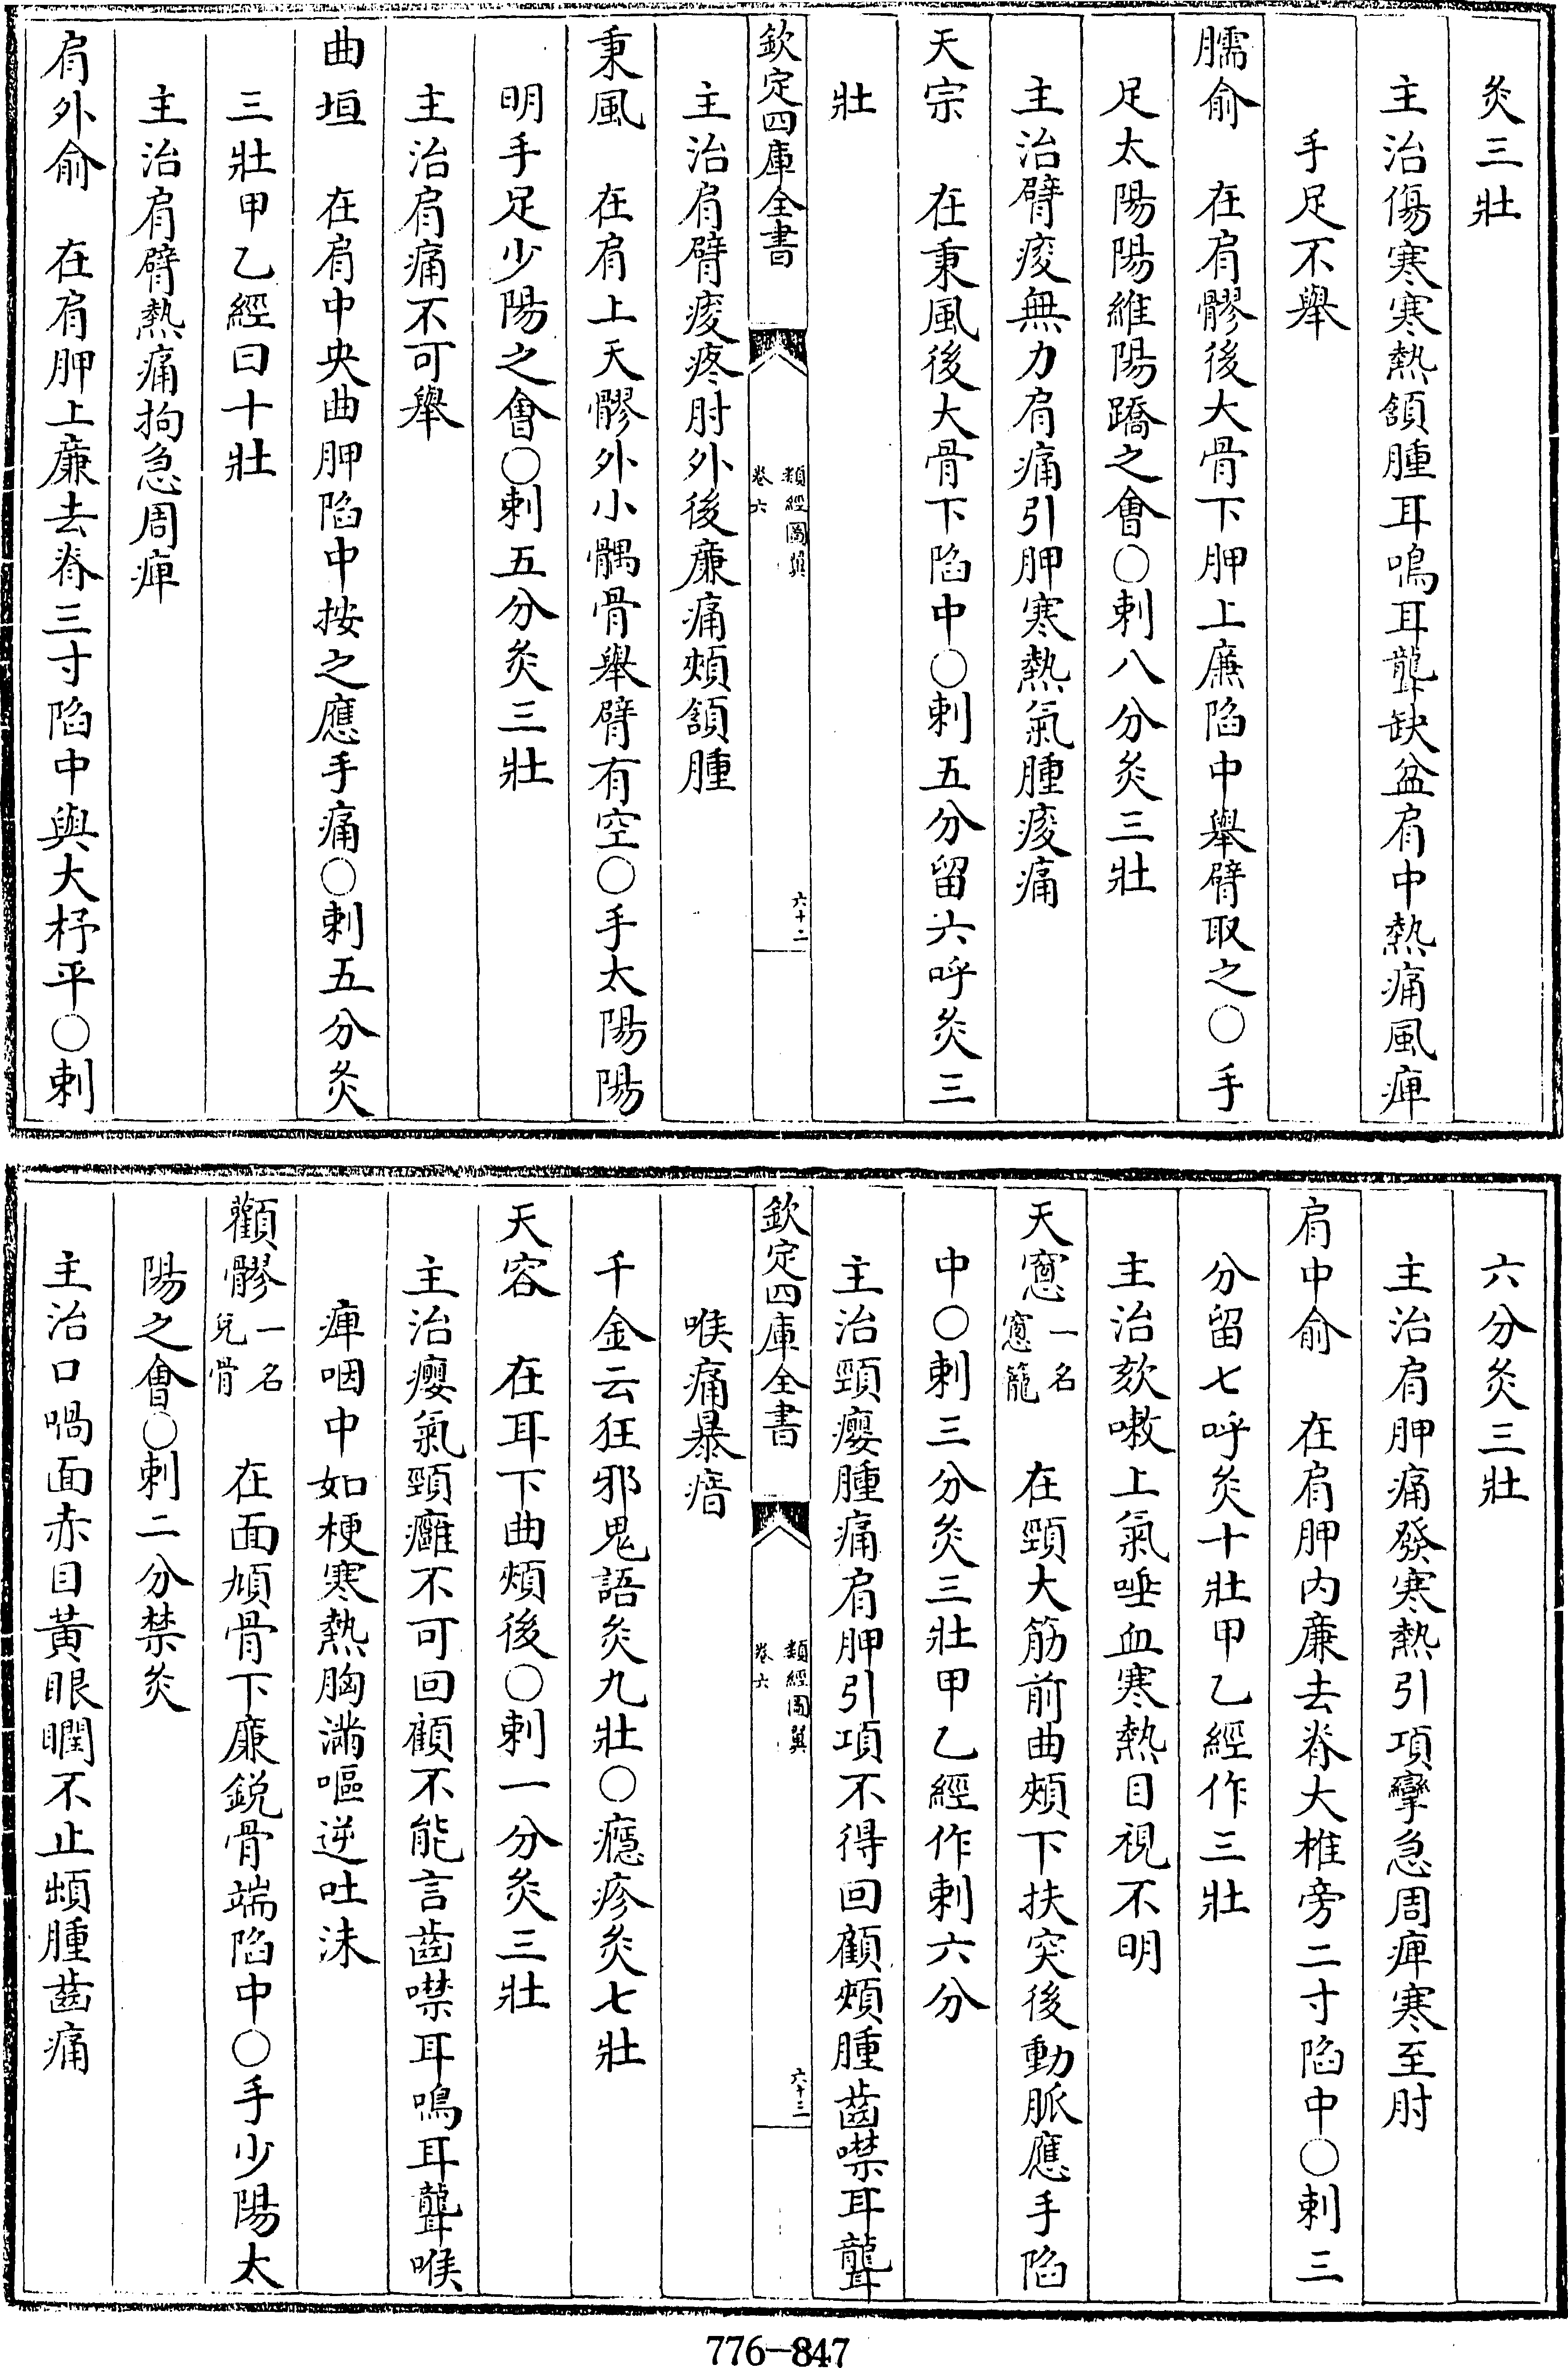 灸三壯
主治傷寒寒熱頷腫耳鳴耳聾缺盆肩中熱痛風痺
手足不舉
臑俞　在肩髎後大骨下胛上廉陷中舉臂取之○手
足太陽陽維陽蹻之會○刺八分灸三壯
主治臂痠無力肩痛引胛寒熱氣腫痠痛
天宗　在秉風後大骨下陷中○刺五分留六呼灸三
壯
欽定四庫全書
類經圖翼
卷六
六十二
主治肩臂痠疼肘外後廉痛頰頷腫
秉風　在肩上天髎外小髃骨舉臂有空○手太陽陽
明手足少陽之會○刺五分灸三壯
主治肩痛不可舉
曲垣　在肩中央曲胛陷中按之應手痛○刺五分灸
三壯甲乙經曰十壯
主治肩臂熱痛拘急周痺
肩外俞　在肩胛上廉去脊三寸陷中與大杼平○刺
六分灸三壯
主治肩胛痛發寒熱引項攣急周痺寒至肘
肩中俞　在肩胛內廉去脊大椎旁二寸陷中○刺三
分留七呼灸十壯甲乙經作三壯
主治欬嗽上氣唾血寒熱目視不明
天窻一名窻籠　在頸大筋前曲頰下扶突後動脈應手陷
中○刺三分灸三壯甲乙經作刺六分
主治頸癭腫痛肩胛引項不得回顧頰腫齒噤耳聾
喉痛暴瘖
欽定四庫全書
類經圖翼
卷六
六十三
千金云狂邪鬼語灸九壯○癮疹灸七壯
天容　在耳下曲頰後○刺一分灸三壯
主治癭氣頸癰不可回顧不能言齒噤耳鳴耳聾喉
痺咽中如梗寒熱胸滿嘔逆吐沫
顴髎一名兌骨　在面頄骨下廉銳骨端陷中○手少陽太
陽之會○刺二分禁灸
主治口喎面赤目黃眼瞤不止䪼腫齒痛
776-847